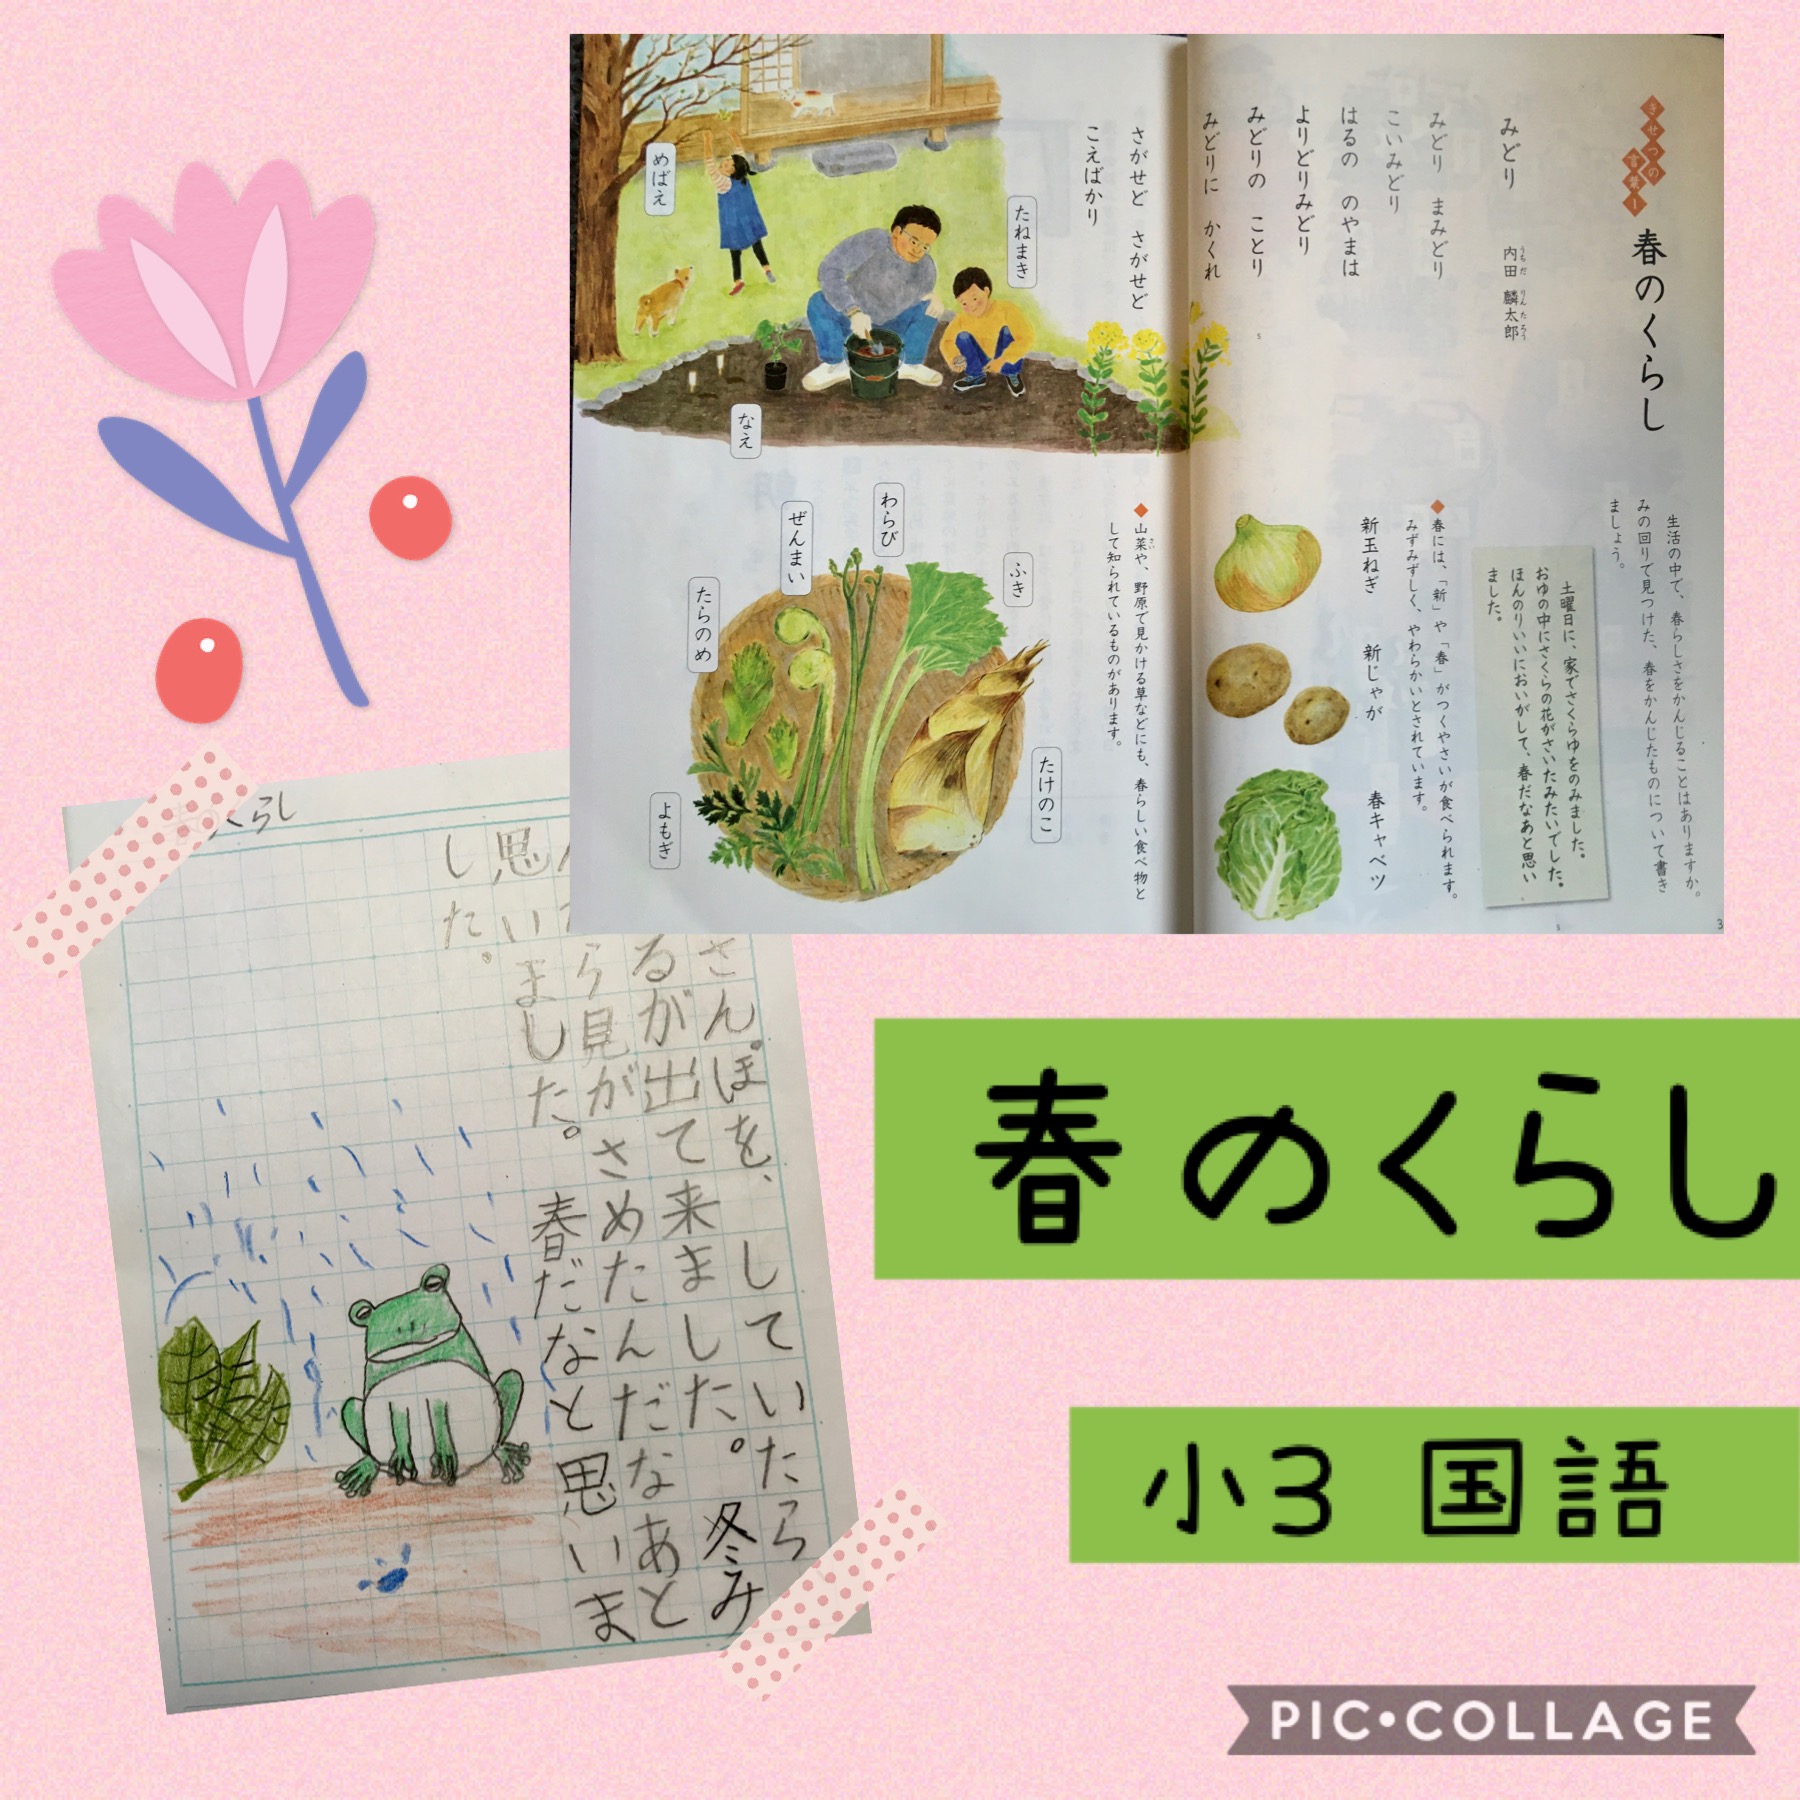 きせつの
言葉1
春のくらし
生活の中で、春らしさをかんじることはありますか。
みの回りで見つけた、春をかんじたものについて書き
ましょう。
土曜日に、家でさくらゆをのみました。
おゆの中にさくらの花がさいたみたいでした。
ほんのりいいにおいがして、春だなあと思い
ました。
みどり
内田 麟太郎
うちだ りんたろう
みどり まみどり
こいみどり
はるの のやまは
よりどりみどり
みどりの ことり
みどりに かくれ
さがせど さがせど
こえばかり
5
春には、「新」や「春」がつくやさいが食べられます。
みずみずしく、やわらかいとされています。
新玉ねぎ 新じゃが 春キャベツ
山菜や、野原で見かける草などにも、春らしい食べ物と
さい
して知られているものがあります。
めばえ
たねまき
なえ
わらび
ぜんまい
ふき
たらのめ
たけのこ
よもぎ
3
くらし
さんぽを、していたら
るが出て来ました。冬み
ら見がさめたんだなあと
思いました。春だなと思いま
した。
春のくらし
小3 国語
PIC•COLLAGE